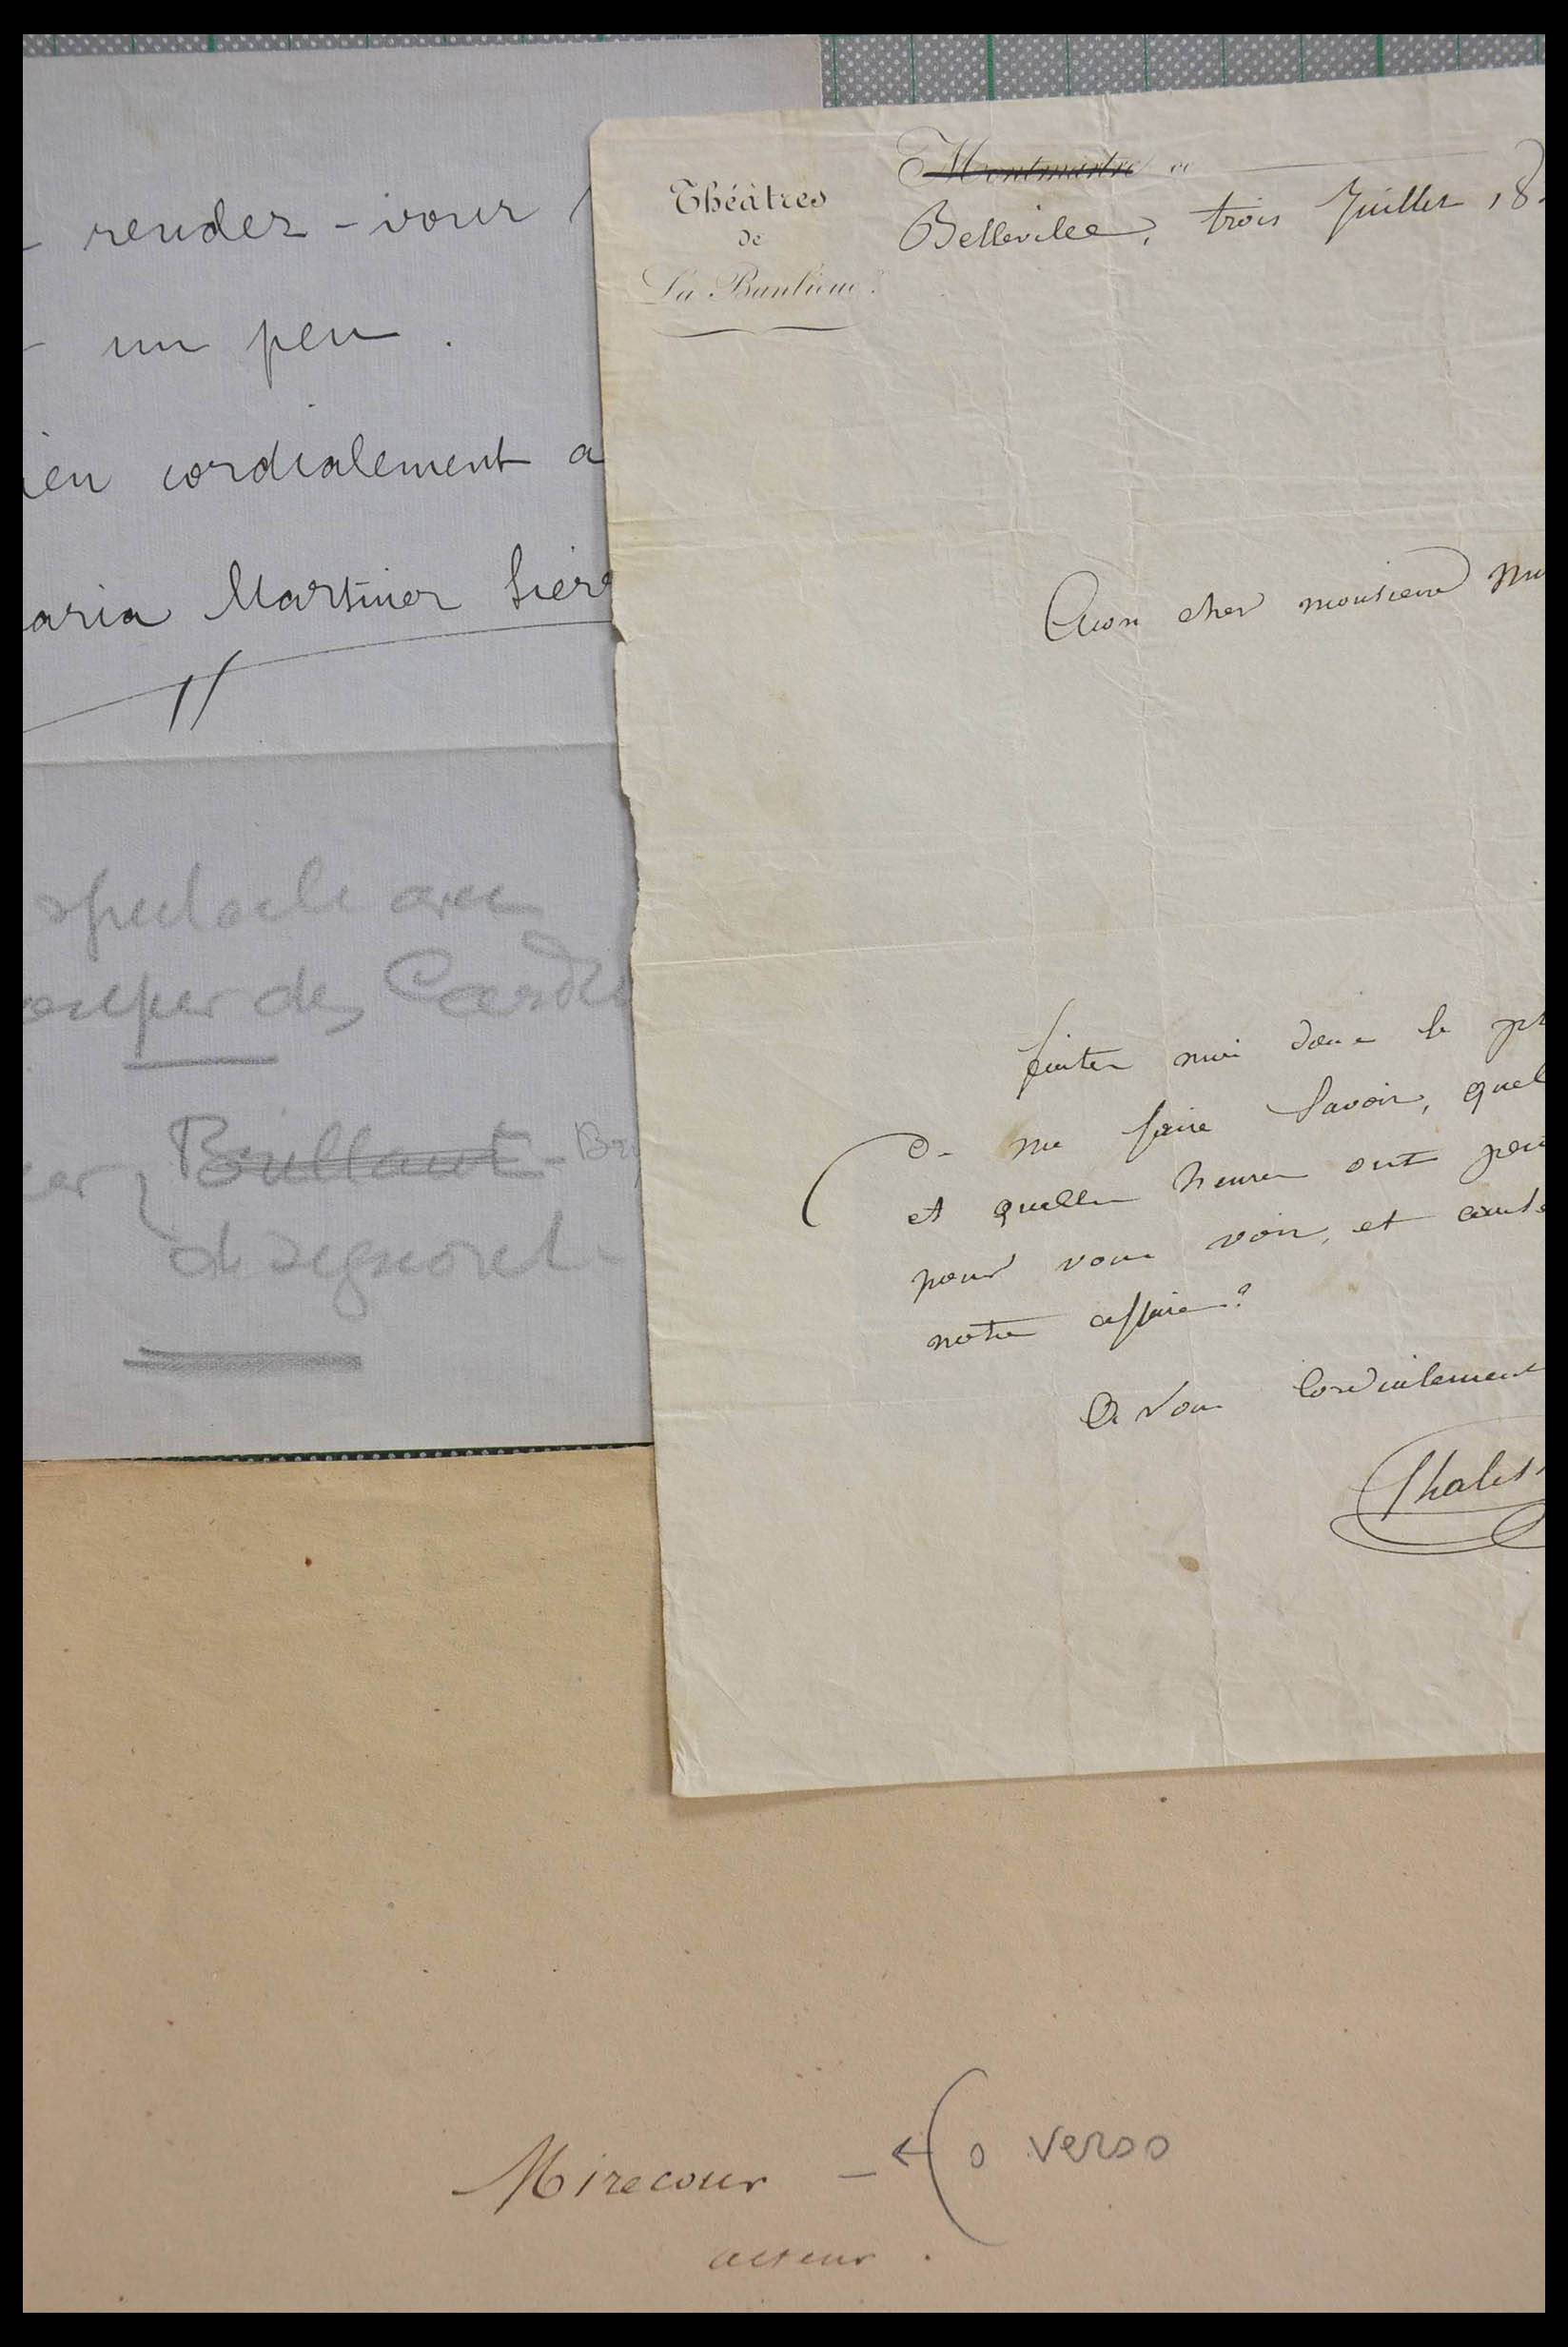 - rendez-vour
- un peu.
ien cordialement a
aria Martinez Sierr
spectacle avec
couper des Cardi
cer, Brillant - Br
de Signoret -
Théâtres
de
La Banlieue.
Montmartre ou
Belleville, trois Juillet 18
Mon cher monsieur Mi
faites moi donc le pl
De me faire Savoir, quel
et quelles heures ont peu
pour vous voir, et cause
notre affaire?
à vous Cordialement
Chales
Mirecour - ← ( o verso
acteur.